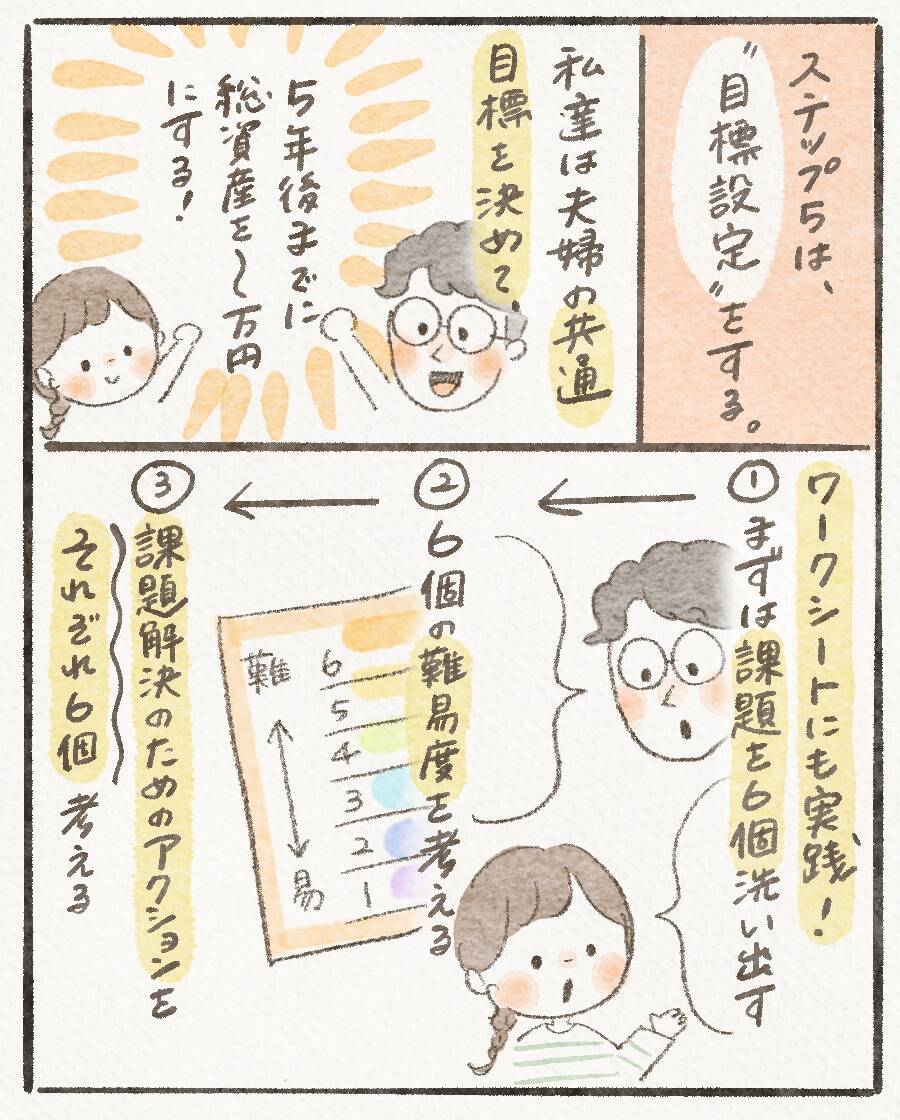 ステップ5は、
〝目標設定〟をする。
私達は夫婦の共通
目標を決めて、
5年後までに
総資産を〜万円
にする!
ワークシートにも実践!
①
まずは課題を6個洗い出す
②
6個の難易度を考える
難
6
5
4
3
2
1
易
③
課題解決のためのアクションを
それぞれ6個考える